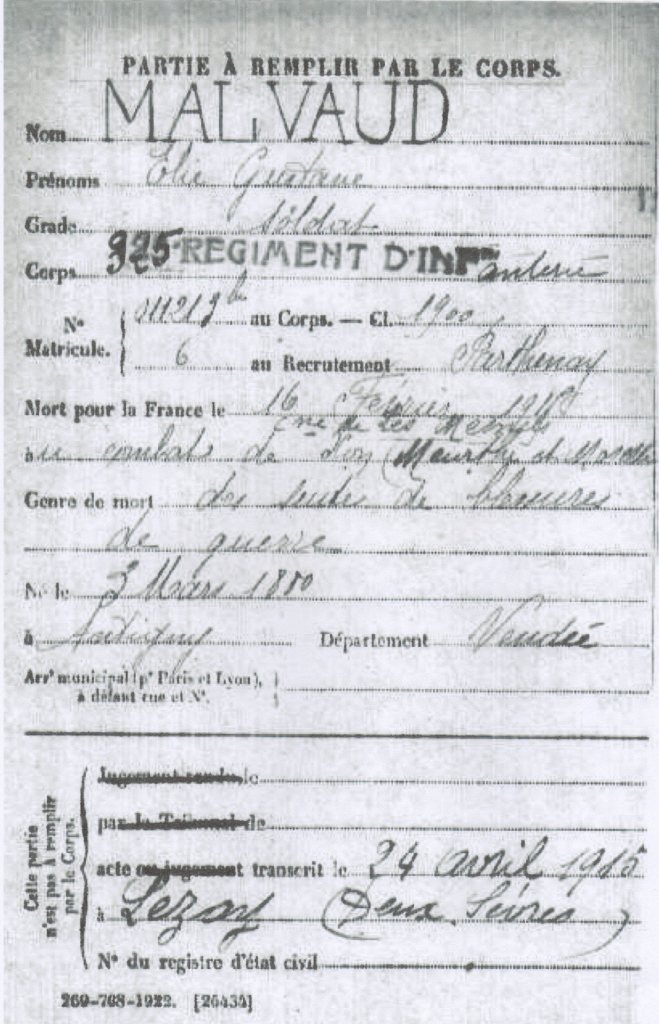 PARTIE À REMPLIR PAR LE CORPS.
Nom MALVAUD
Prénoms Elie Gustave
Grade Soldat
Corps 325 REGIMENT D'INFanterie
N° Matricule. { 011213 au Corps. — Cl. 1900
6 au Recrutement Parthenay
Mort pour la France le 16 Février 1915
Cne de Les Mesnils
à u combat de (Meurthe et Moselle
Genre de mort des suites de blessures
de guerre
Né le 3 Mars 1880
à Antigny Département Vendée
Arrt municipal (pr Paris et Lyon),
à défaut rue et N°.
Cette partie n'est pas à remplir par le Corps.
Jugement rendu le
par le Tribunal de
acte ou jugement transcrit le 24 avril 1915
à Lezay (Deux Sèvres)
N° du registre d'état civil
269-768-1922. [26434]